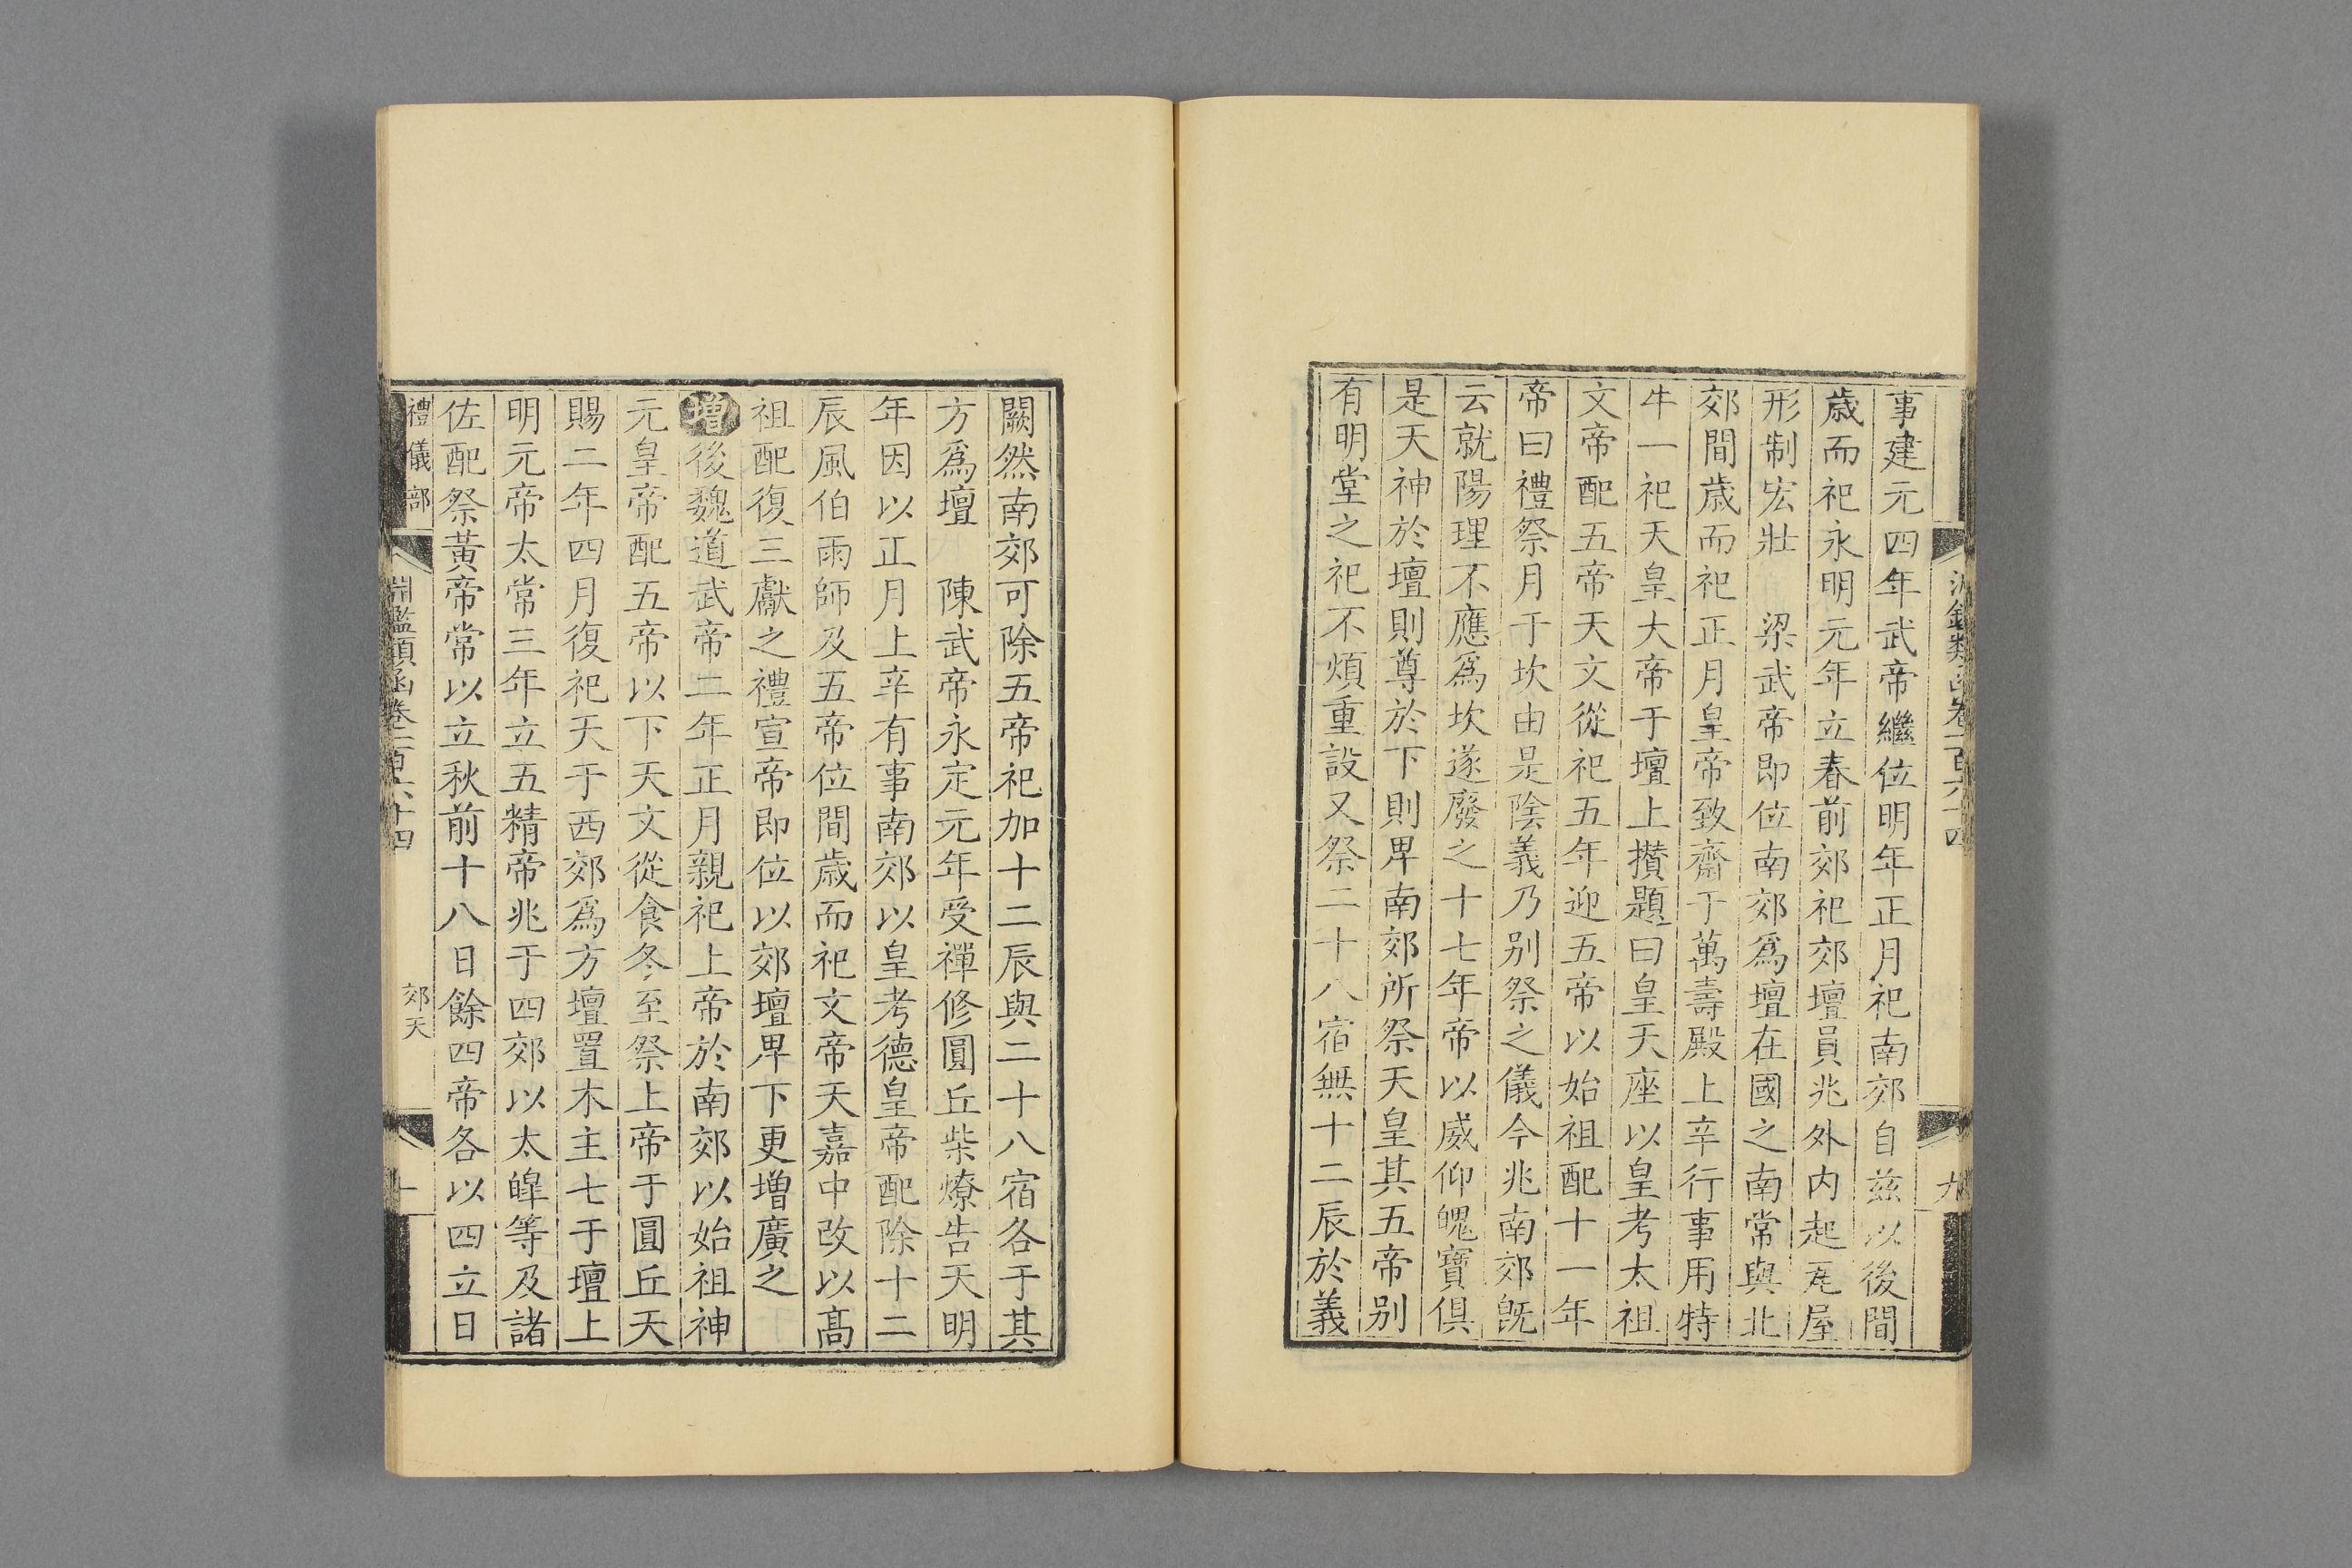 事建元四年武帝繼位明年正月祀南郊自兹以後間
歳而祀永明元年立春前郊祀郊壇員兆外内起瓦屋
形制宏壯　梁武帝即位南郊爲壇在國之南常與北
郊間歳而祀正月皇帝致齋于萬壽殿上辛行事用特
牛一祀天皇大帝于壇上攅題曰皇天座以皇考太祖
文帝配五帝天文從祀五年迎五帝以始祖配十一年
帝曰禮祭月于坎由是陰義乃别祭之儀今兆南郊旣
云就陽理不應爲坎遂廢之十七年帝以威仰魄寶俱
是天神於壇則尊於下則卑南郊所祭天皇其五帝别
有明堂之祀不煩重設又祭二十八宿無十二辰於義
闕然南郊可除五帝祀加十二辰與二十八宿各于其
方爲壇　陳武帝永定元年受禪修圓丘柴燎告天明
年因以正月上辛有事南郊以皇考德皇帝配除十二
辰風伯雨師及五帝位間歳而祀文帝天嘉中改以髙
祖配復三獻之禮宣帝即位以郊壇卑下更增廣之
增後魏道武帝二年正月親祀上帝於南郊以始祖神
元皇帝配五帝以下天文從食冬至祭上帝于圓丘天
賜二年四月復祀天于西郊爲方壇置木主七于壇上
明元帝太常三年立五精帝兆于四郊以太皥等及諸
佐配祭黃帝常以立秋前十八日餘四帝各以四立日
禮儀部
淵鑑類函卷一百六十四
郊天